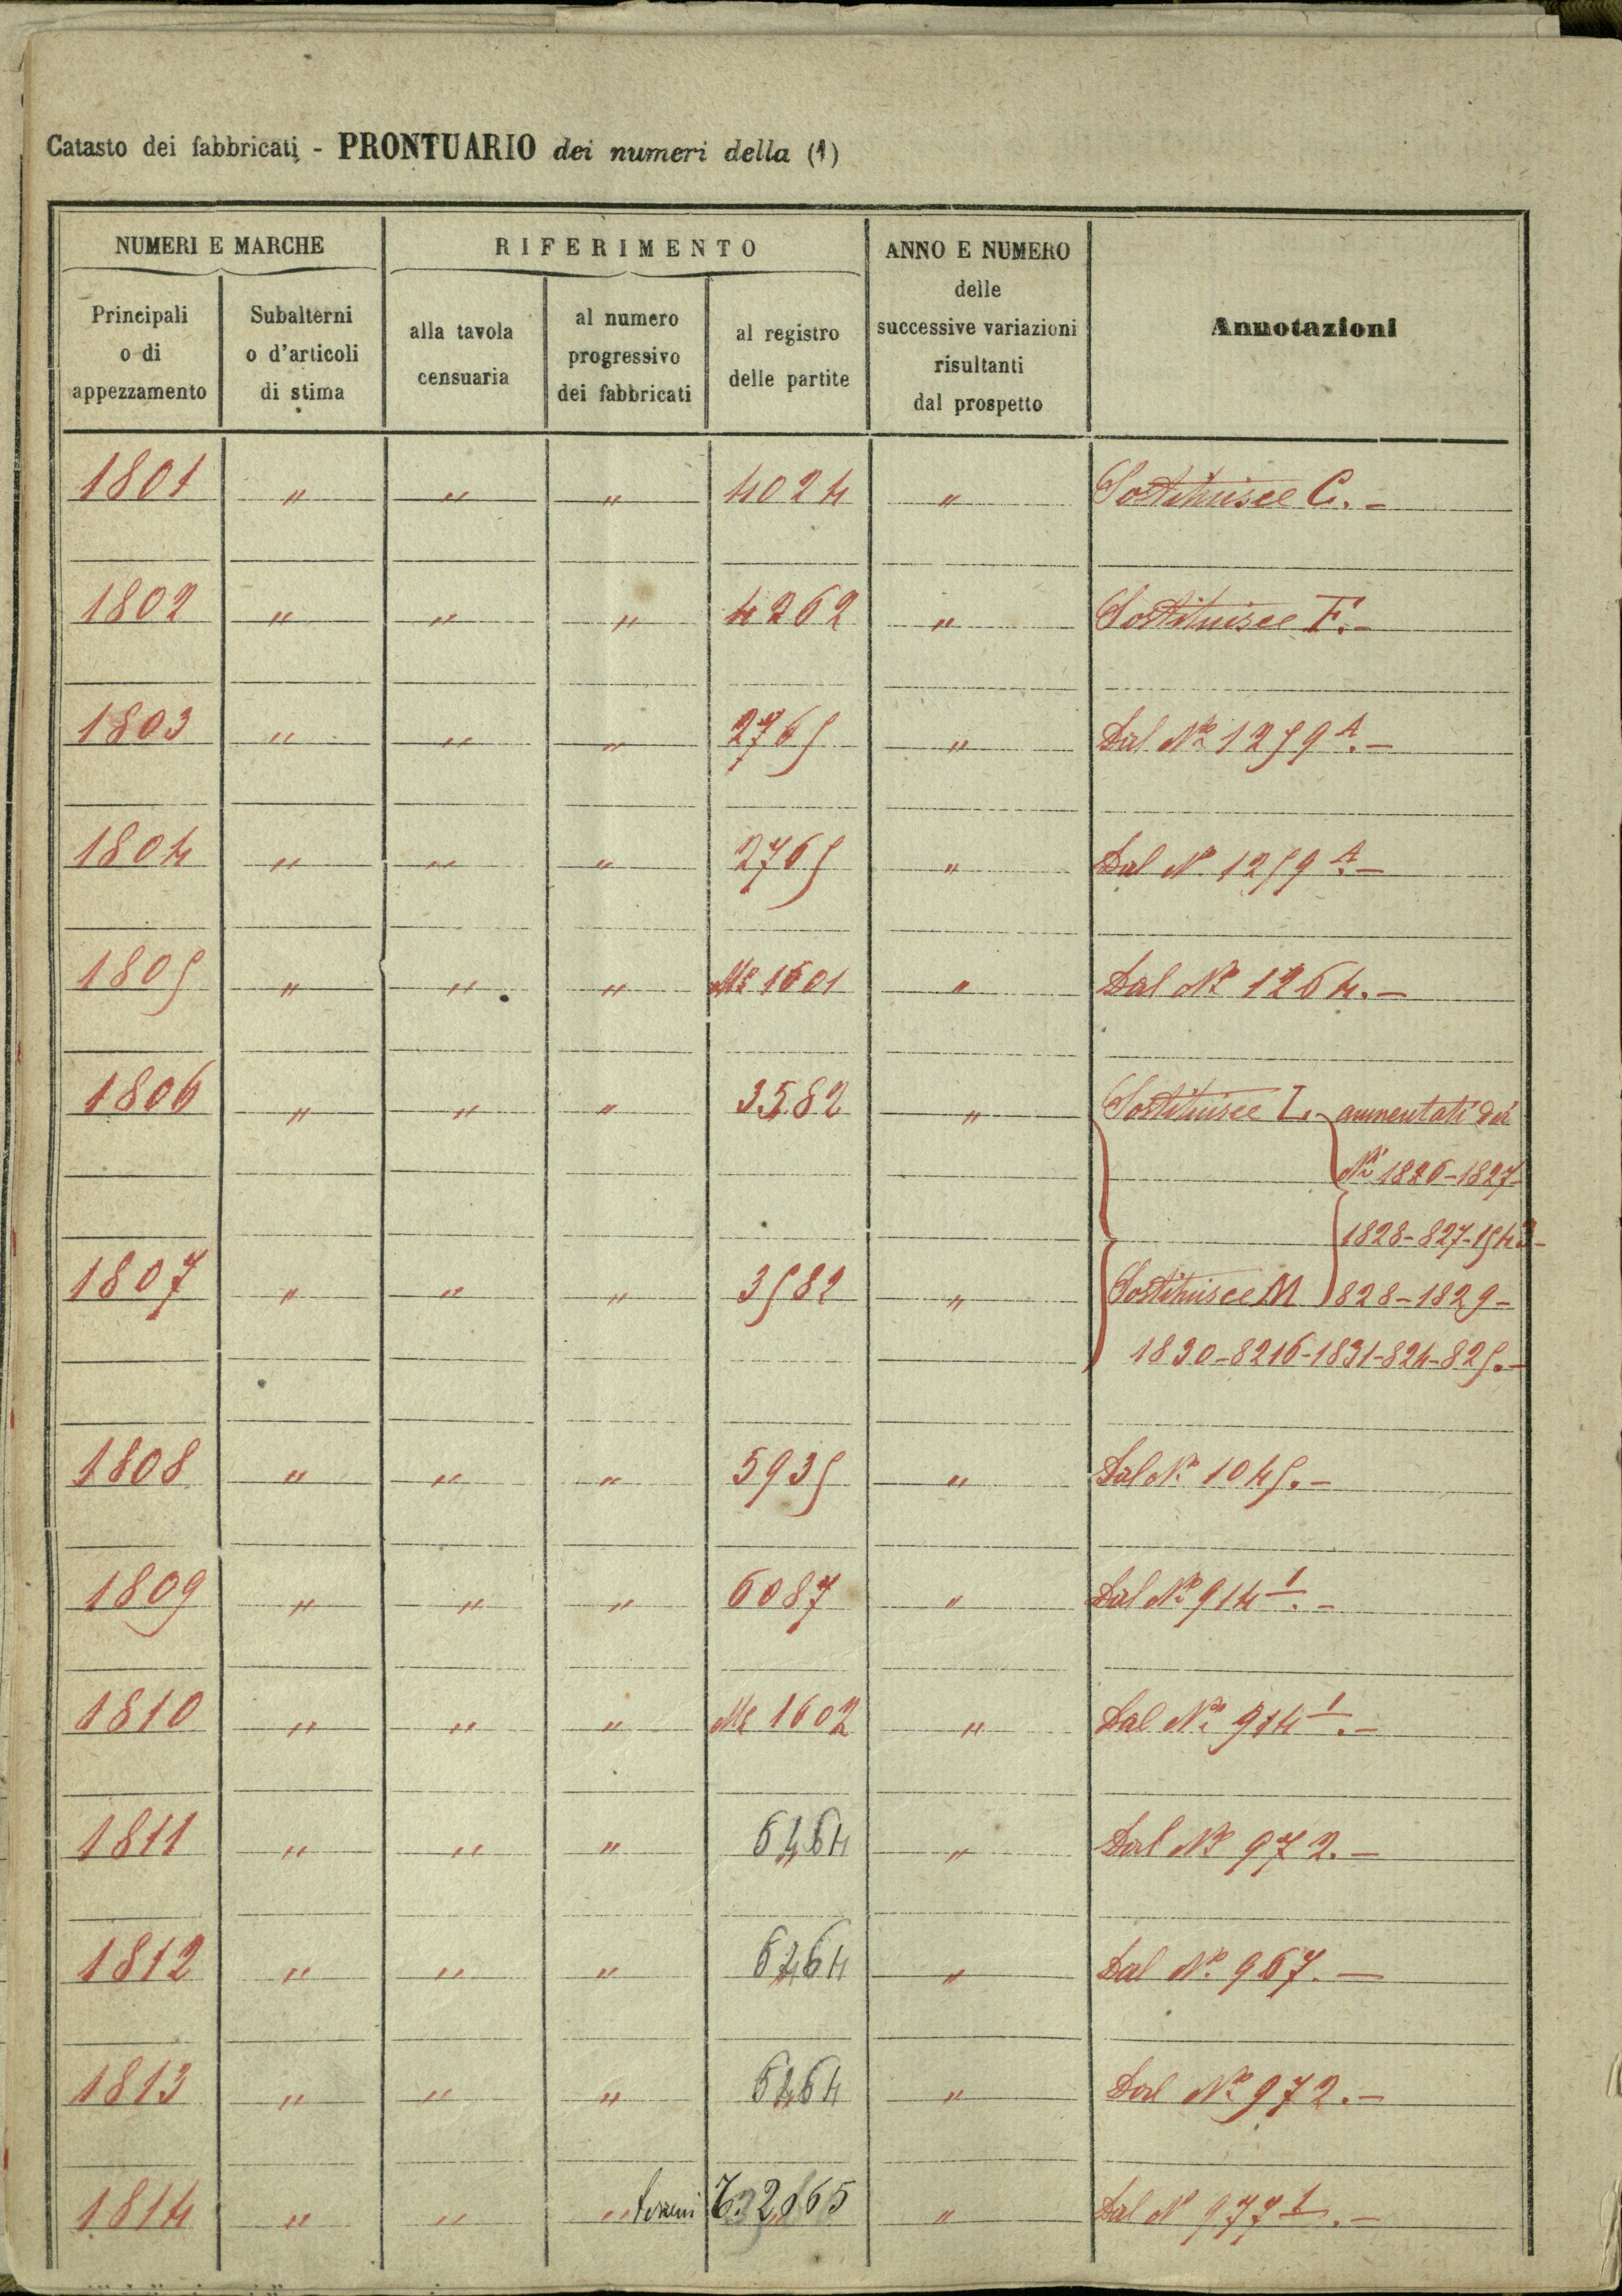 Catasto dei fabbricati - PRONTUARIO dei numeri della (1)
NUMERI E MARCHE
RIFERIMENTO
ANNO E NUMERO
delle
successive variazioni
risultanti
dal prospetto
Annotazioni
Principali
o di
appezzamento
Subalterni
o d'articoli
di stima
alla tavola
censuaria
al numero
progressivo
dei fabbricati
al registro
delle partite
1801 " " " 4024 " Sostituisce C. -
1802 " " " 4262 " Sostituisce F. -
1803 " " " 2765 " Dal No 1259 A. -
1804 " " " 2765 " Dal No 1259 A. -
1805 " " " Me 1601 " Dal No 1264. -
1806 " " " 3582 " Sostituisce L. - aumentati dei
Ni 1826-1827-
1828-827-1543-
1807 " " " 3582 " Sostituisce M 828-1829-
1830-8216-1831-824-825. -
1808 " " " 5935 " Dal No 1045. -
1809 " " " 6087 " Dal No 914 1. -
1810 " " " Me 1602 " Dal No 914 1. -
1811 " " " 6464 " Dal No 972. -
1812 " " " 6464 " Dal No 967. -
1813 " " " 6464 " Dal No 972. -
1814 " " " " Dal No 977 1. -